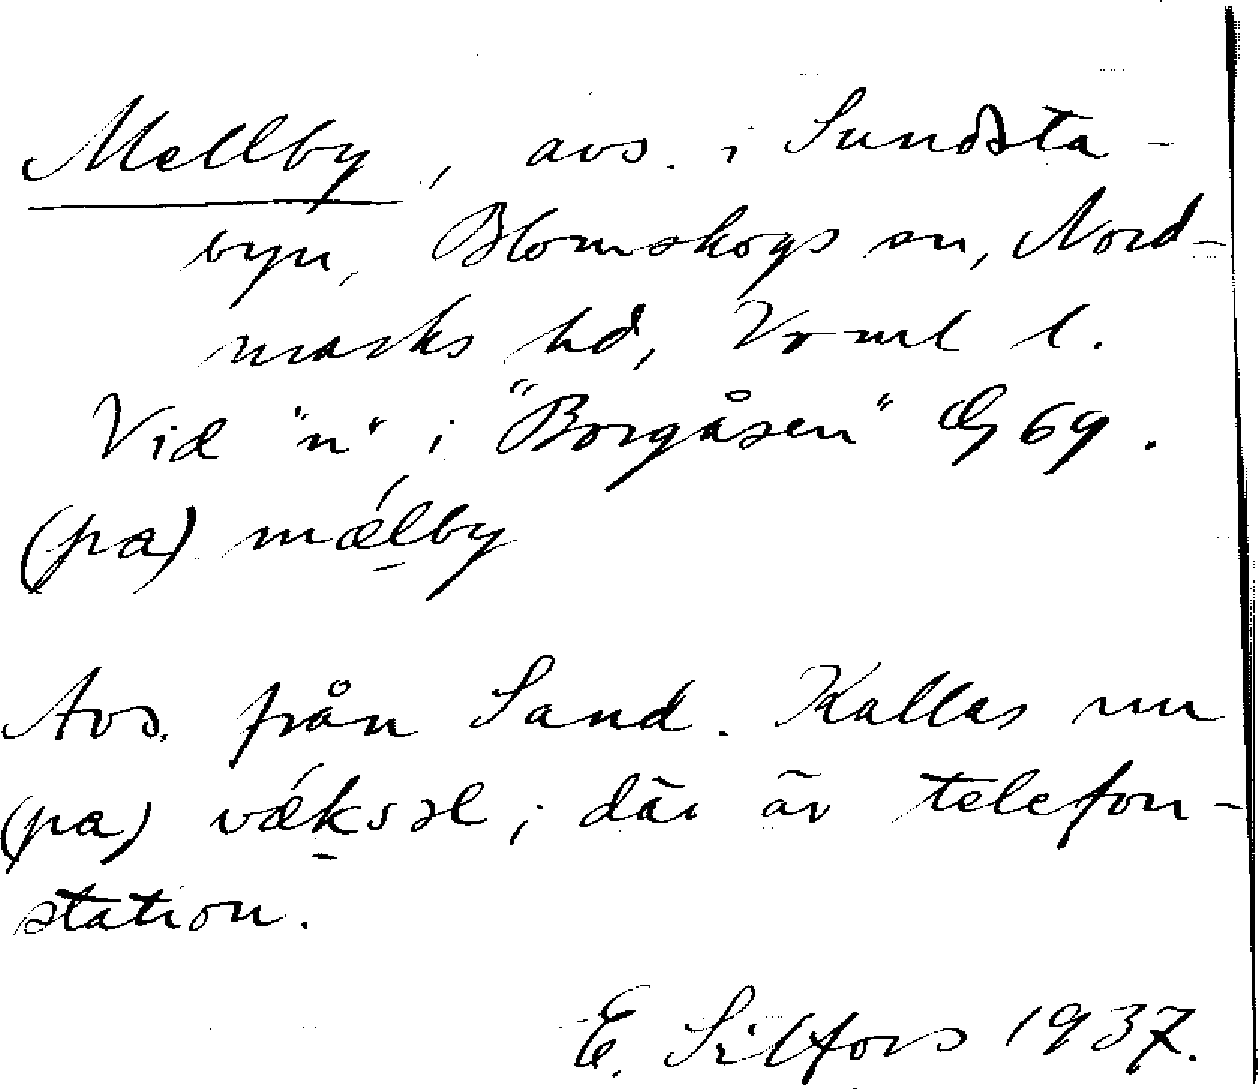 Mellby, avs. i Sundsta-
byn, Blomskogs sn, Nord-
marks hd, Vrml l.
Vid "n" i "Borgåsen" G 69.
(pa) mǽl̠by
Avs. från Sand. Kallas nu
(pa) vǽk̠səl; där är telefon-
station.
E. Silfors 1937.